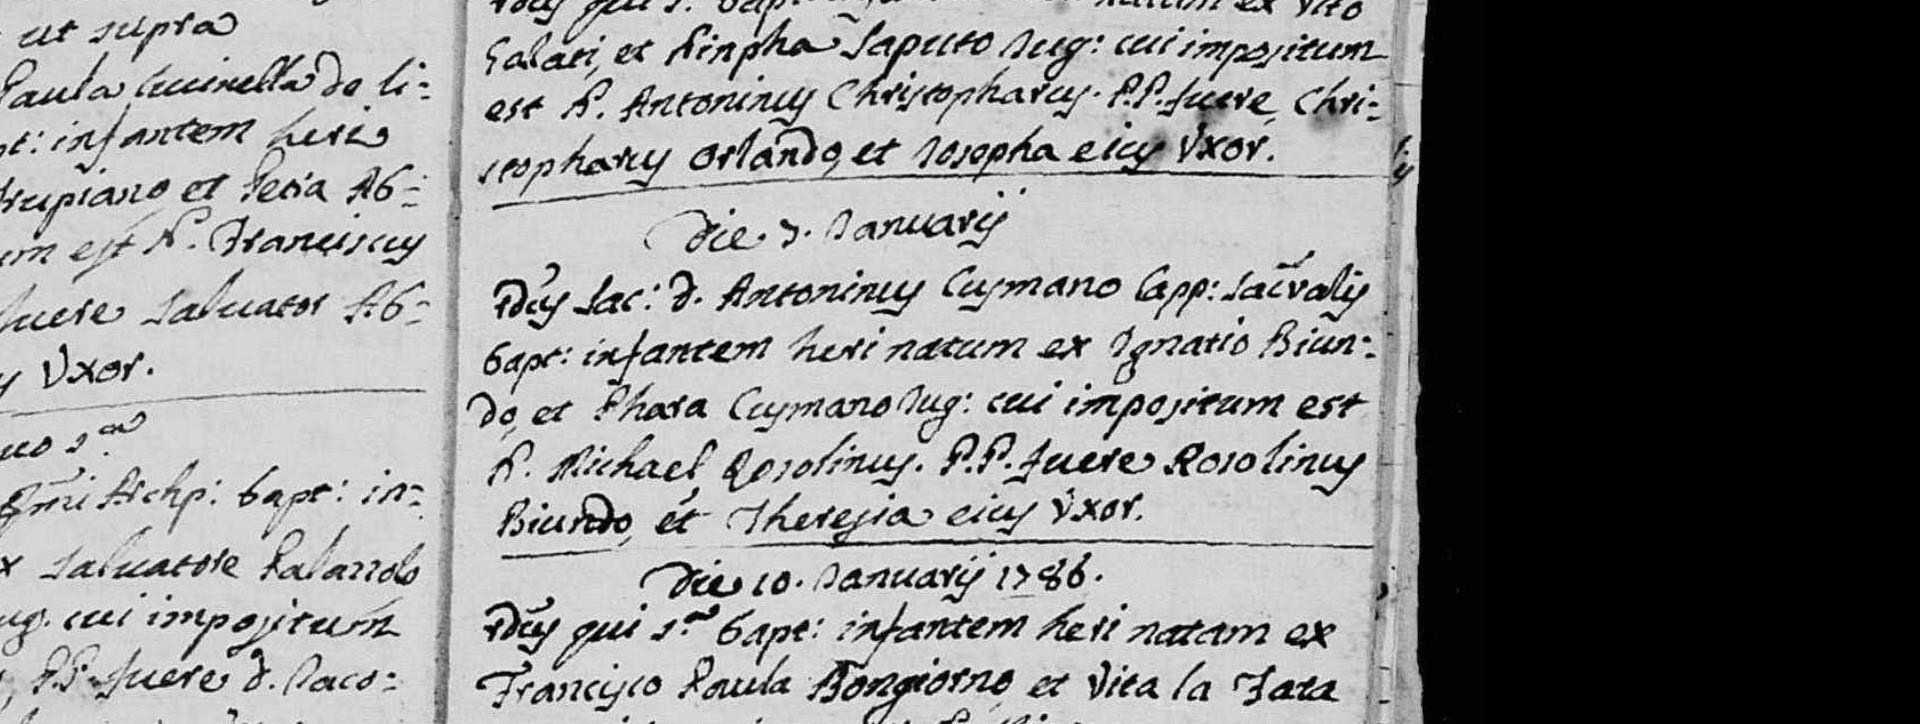 ut supra
Paula Cucinella de li-
pt: infantem heri
Trupiano et Petra Ab-
um est N. Franciscus
fuere Salvator Ab-
Uxor.
quo s.ra
Archp: bapt: in-
x Salvatore Palazzolo
ug. cui impositum
P.P. fuere d. Jaco-
Rdus qui s.a bapt: natum ex Vito
Galati, et Ninpha Saputo Jug: cui impositum
est N. Antoninus Christopharus. P.P. fuere, Chri-
stopharus Orlando, et Josepha eius Uxor.
Die 7. Januarij
Rdus Sac: d. Antoninus Cusmano Capp: Sac̃valis
bapt: infantem heri natum ex Ignatio Biun-
do, et Phara Cusmano Jug: cui impositum est
N. Michael Rosolinus. P.P. fuere Rosolinus
Biundo, et Theresia eius Uxor.
Die 10. Januarij 1786.
Rdus qui s.a bapt: infantem heri natam ex
Francisco Paula Bongiorno, et Vita la Fata